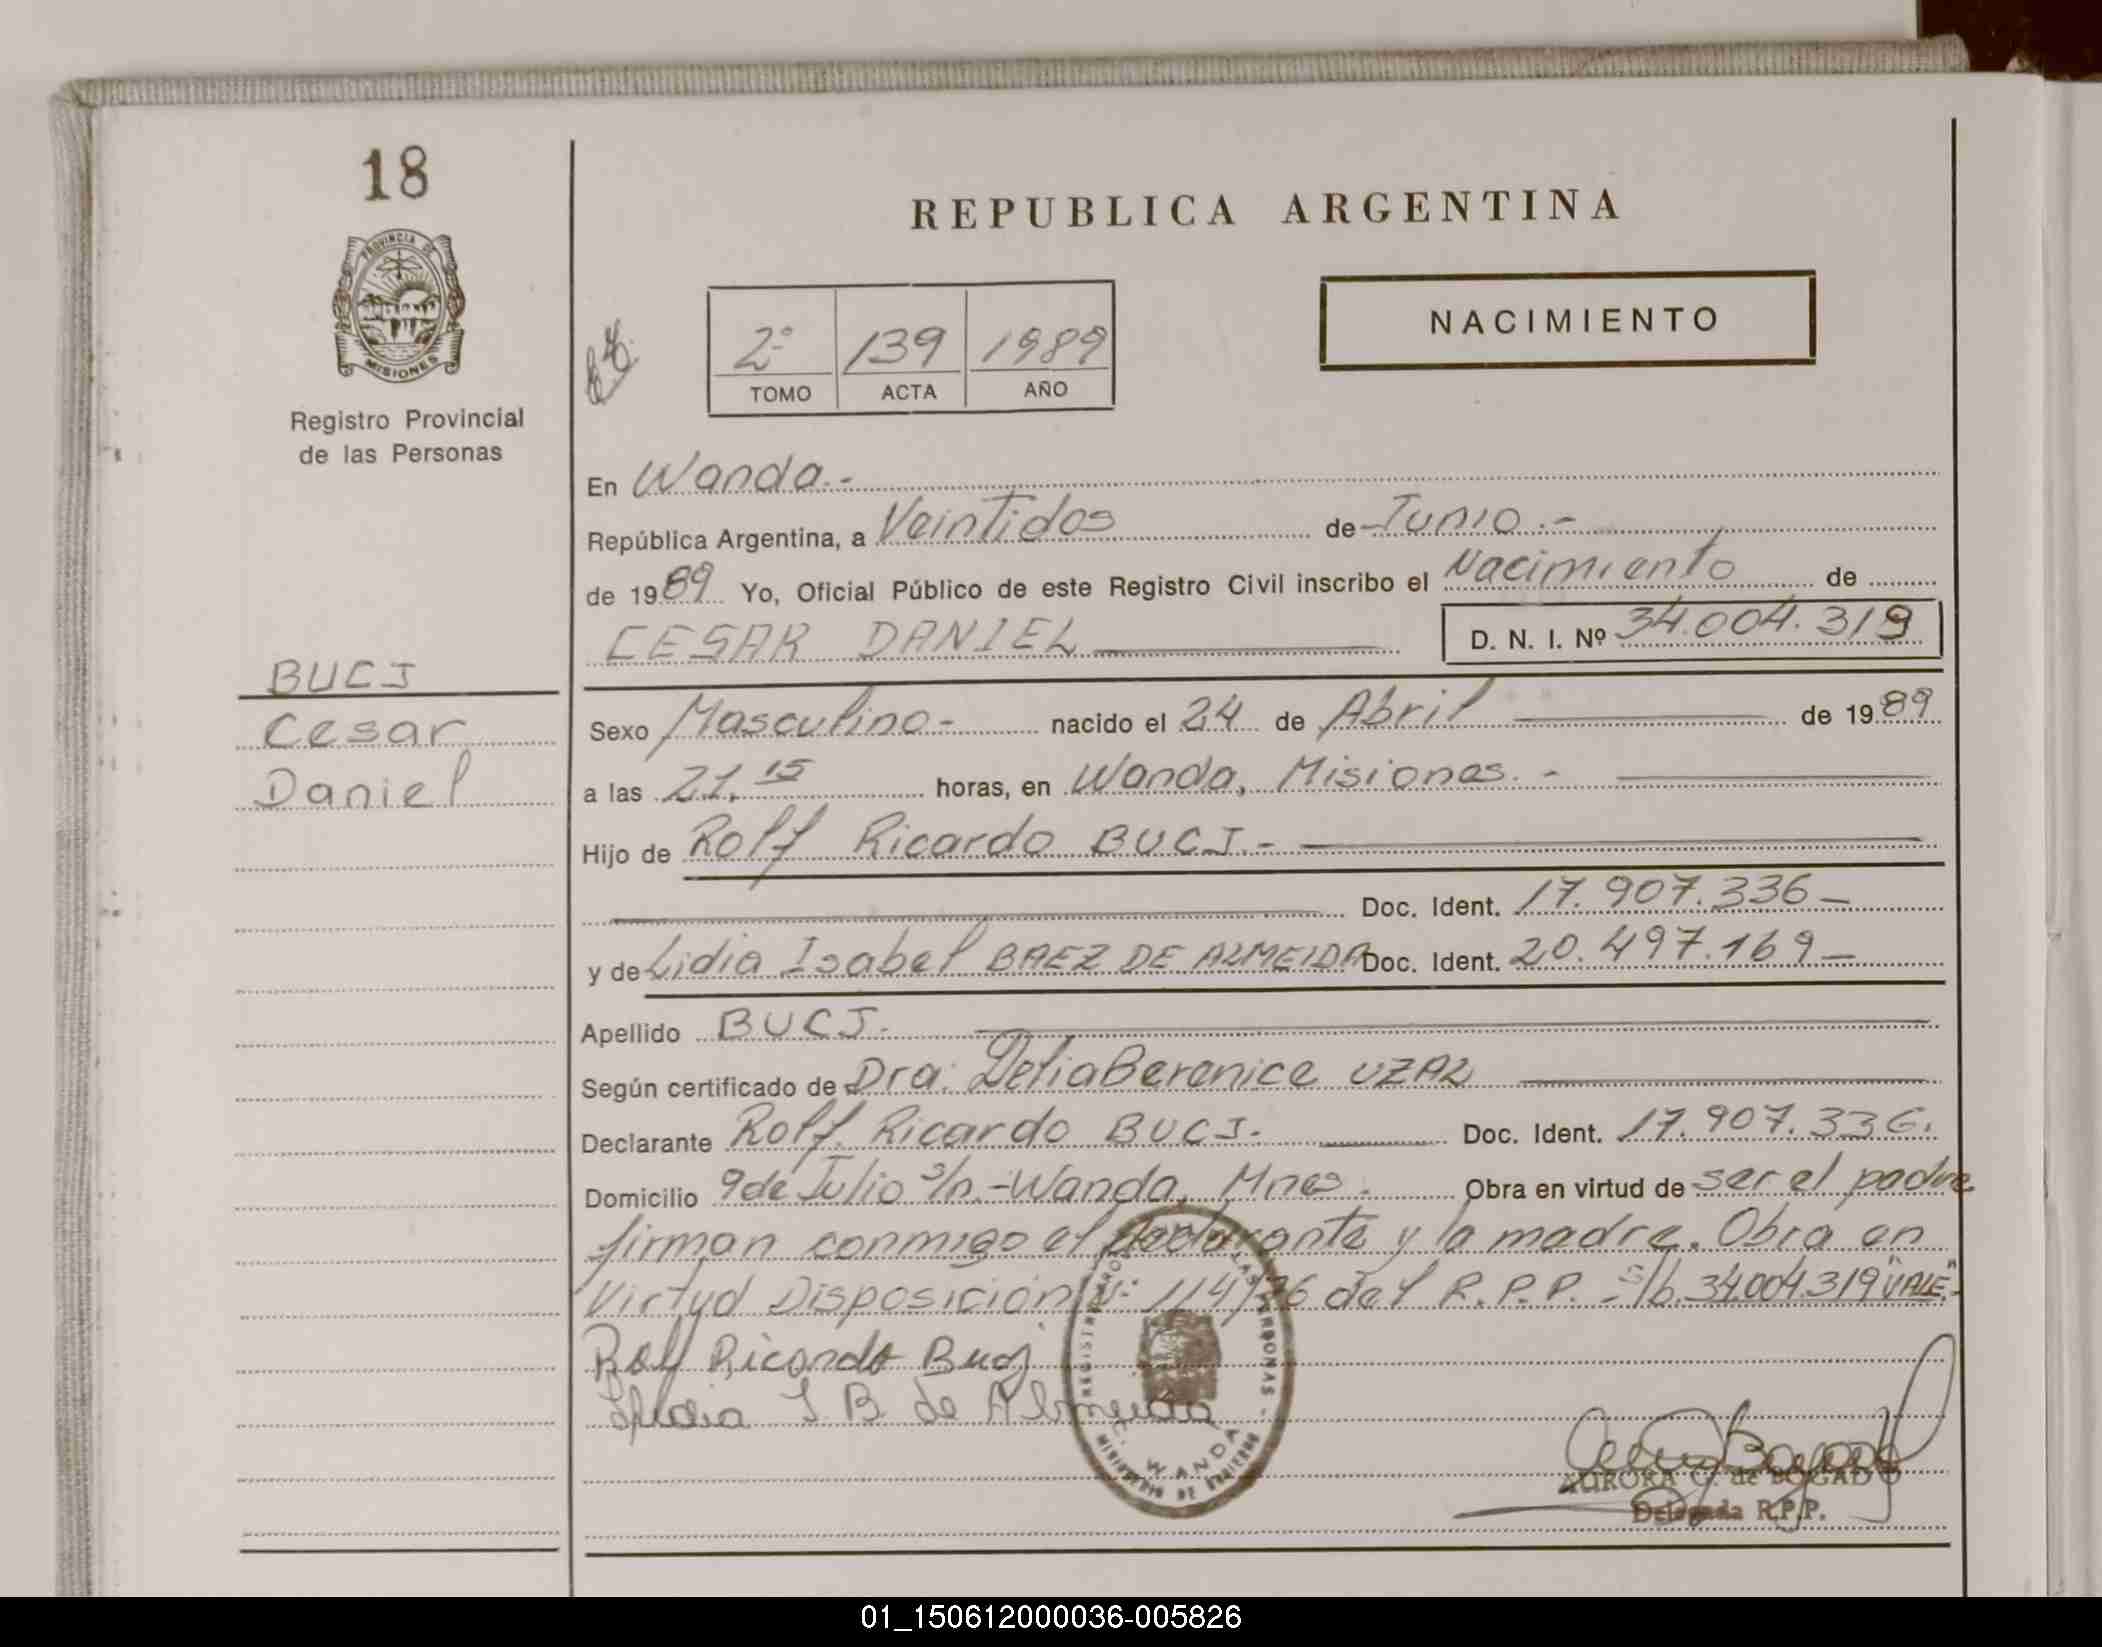 18
REPUBLICA ARGENTINA
PROVINCIA DE
MISIONES
Registro Provincial
de las Personas
2º 139 1989
TOMO ACTA AÑO
NACIMIENTO
En Wanda.-
República Argentina, a Veintidos de Junio.-
de 1989 Yo, Oficial Público de este Registro Civil inscribo el Nacimiento de
CESAR DANIEL D. N. I. Nº 34.004.319
BUCJ
Cesar
Daniel
Sexo Masculino- nacido el 24 de Abril de 1989
a las 21,15 horas, en Wanda, Misiones.-
Hijo de Rolf Ricardo BUCJ.-
Doc. Ident. 17.907.336-
y de Lidia Isabel BAEZ DE ALMEIDA Doc. Ident. 20.497.169-
Apellido BUCJ.
Según certificado de Dra. Delia Berenice UZAL
Declarante Rolf Ricardo BUCJ. Doc. Ident. 17.907.336.
Domicilio 9 de Julio s/n.-Wanda, Mnes. Obra en virtud de ser el padre
firman conmigo el declarante y la madre. Obra en
Virtud Disposición Nº 114/76 del R.P.P. - s/b. 34.004.319 "VALE".-
Rolf Ricardo Bucj
Lidia I. B. de Almeida
WANDA
MINISTERIO DE GOBIERNO
AURORA C. de BOGADO
Delegada R.P.P.
01_150612000036-005826